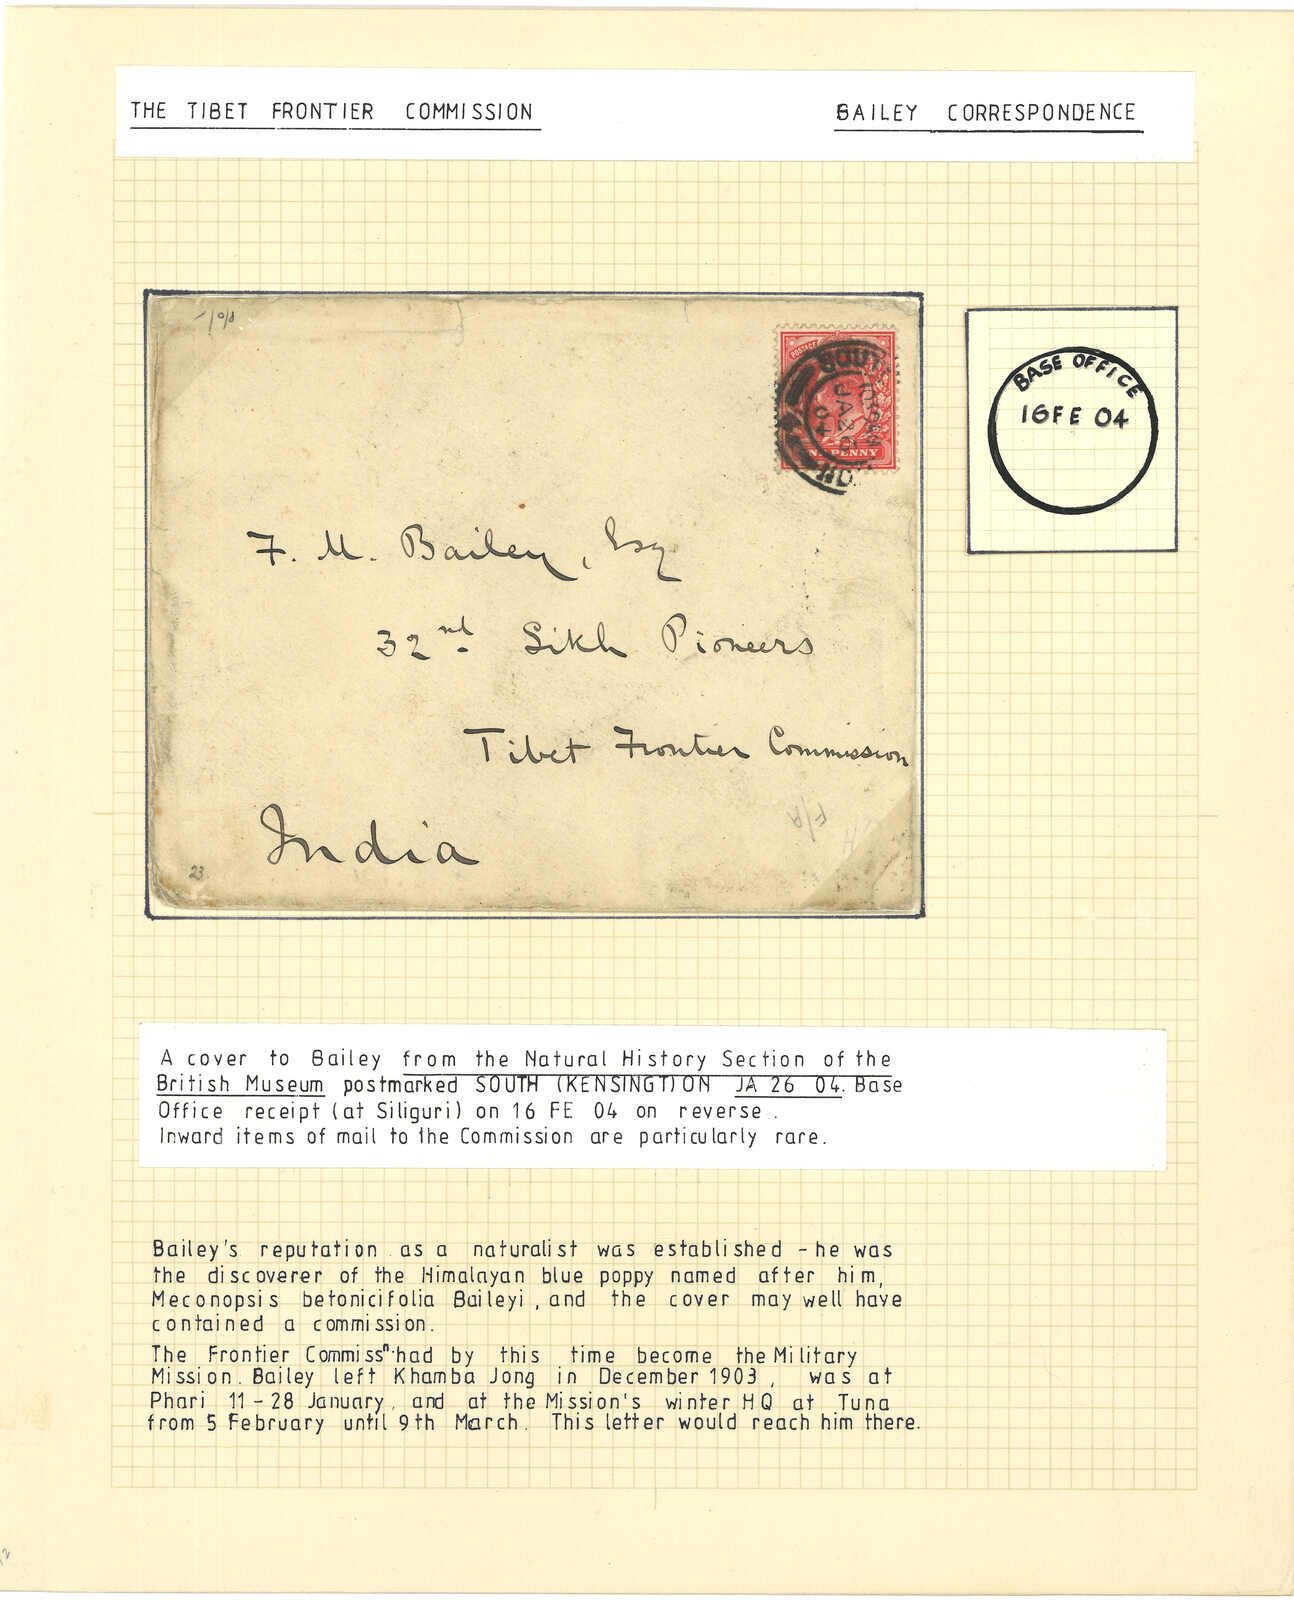 THE TIBET FRONTIER COMMISSION
BAILEY CORRESPONDENCE
POSTAGE
SOUTH
JA 26
04
ON
ONE PENNY
BASE OFFICE
16 FE 04
F. M. Bailey, Esq
32nd Sikh Pioneers
Tibet Frontier Commission
India
F/A
23
A cover to Bailey from the Natural History Section of the
British Museum postmarked SOUTH (KENSINGT)ON JA 26 04. Base
Office receipt (at Siliguri) on 16 FE 04 on reverse.
Inward items of mail to the Commission are particularly rare.
Bailey's reputation as a naturalist was established - he was
the discoverer of the Himalayan blue poppy named after him,
Meconopsis betonicifolia Baileyi, and the cover may well have
contained a commission.
The Frontier Commissn. had by this time become the Military
Mission. Bailey left Khamba Jong in December 1903, was at
Phari 11 - 28 January, and at the Mission's winter HQ at Tuna
from 5 February until 9th March. This letter would reach him there.